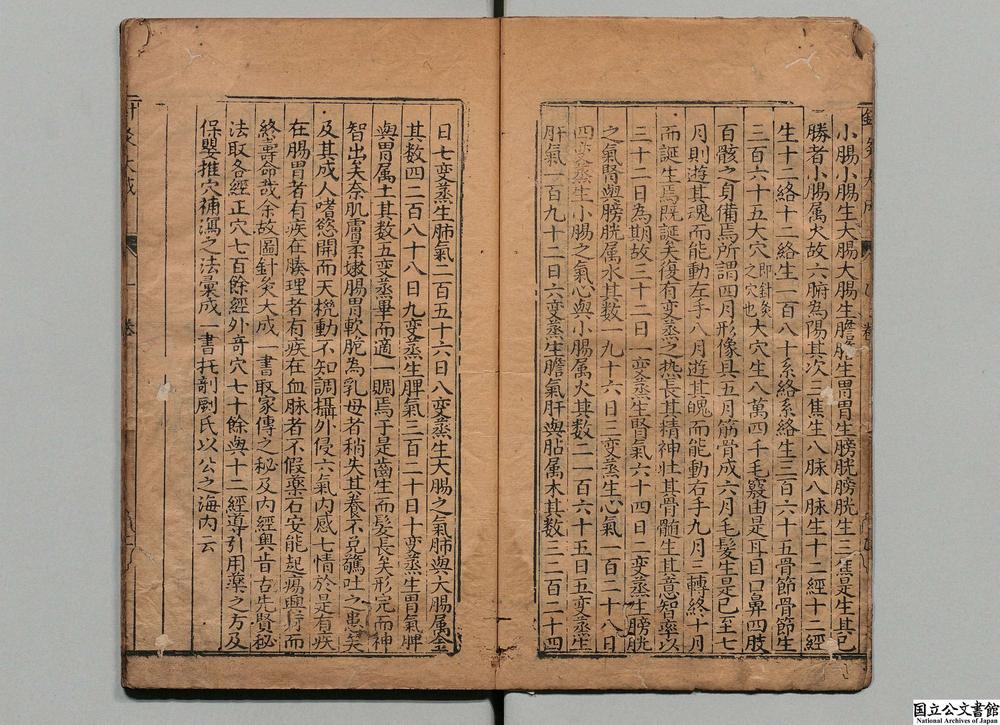 小腸小腸生大腸大腸生膽膽生胃胃生膀胱膀胱生三焦是生其己
勝者小腸属火故六腑為陽其次三焦生八脉八脉生十二經十二經
生十二絡十二絡生一百八十系絡系絡生三百六十五骨節骨節生
三百六十五大穴即針灸之穴也大穴生八萬四千毛竅由是耳目口鼻四肢
百骸之身備焉所謂四月形像具五月筋骨成六月毛髮生是已至七
月則遊其魂而能動左手八月遊其魄而能動右手九月三轉終十月
而誕生焉既誕矣復有变蒸之热長其精神壯其骨髓生其意智率以
三十二日為期故三十二日一变蒸生腎氣六十四日二变蒸生膀胱
之氣腎與膀胱属水其数一九十六日三变蒸生心氣一百二十八日
四变蒸生小腸之氣心與小腸属火其数二一百六十五日五变蒸生
肝氣一百九十二日六变蒸生膽氣肝與胆属木其数三二百二十四
日七变蒸生肺氣二百五十六日八变蒸生大腸之氣肺與大腸属金
其数四二百八十八日九变蒸生脾氣三百二十日十变蒸生胃氣脾
與胃属土其数五变蒸畢而適一期焉于是齒生而髮長矣形完而神
智出矣奈肌膚柔嫩腸胃軟脆為乳母者稍失其養不免驚吐之患矣
及其成人嗜慾開而天機動不知調攝外侵六氣内感七情於是有疾
在腸胃者有疾在腠理者有疾在血脉者不假藥石安能起瘍興而
終壽命哉余故圖針灸大成一書取家傳之秘及内經奥旨古先賢秘
法取各經正穴七百餘經外竒穴七十餘與十二經導引用藥之方及
保嬰推穴補瀉之法彙成一書托剞劂氏以公之海内云
灸大成
卷
国立公文書館
National Archives of Japan